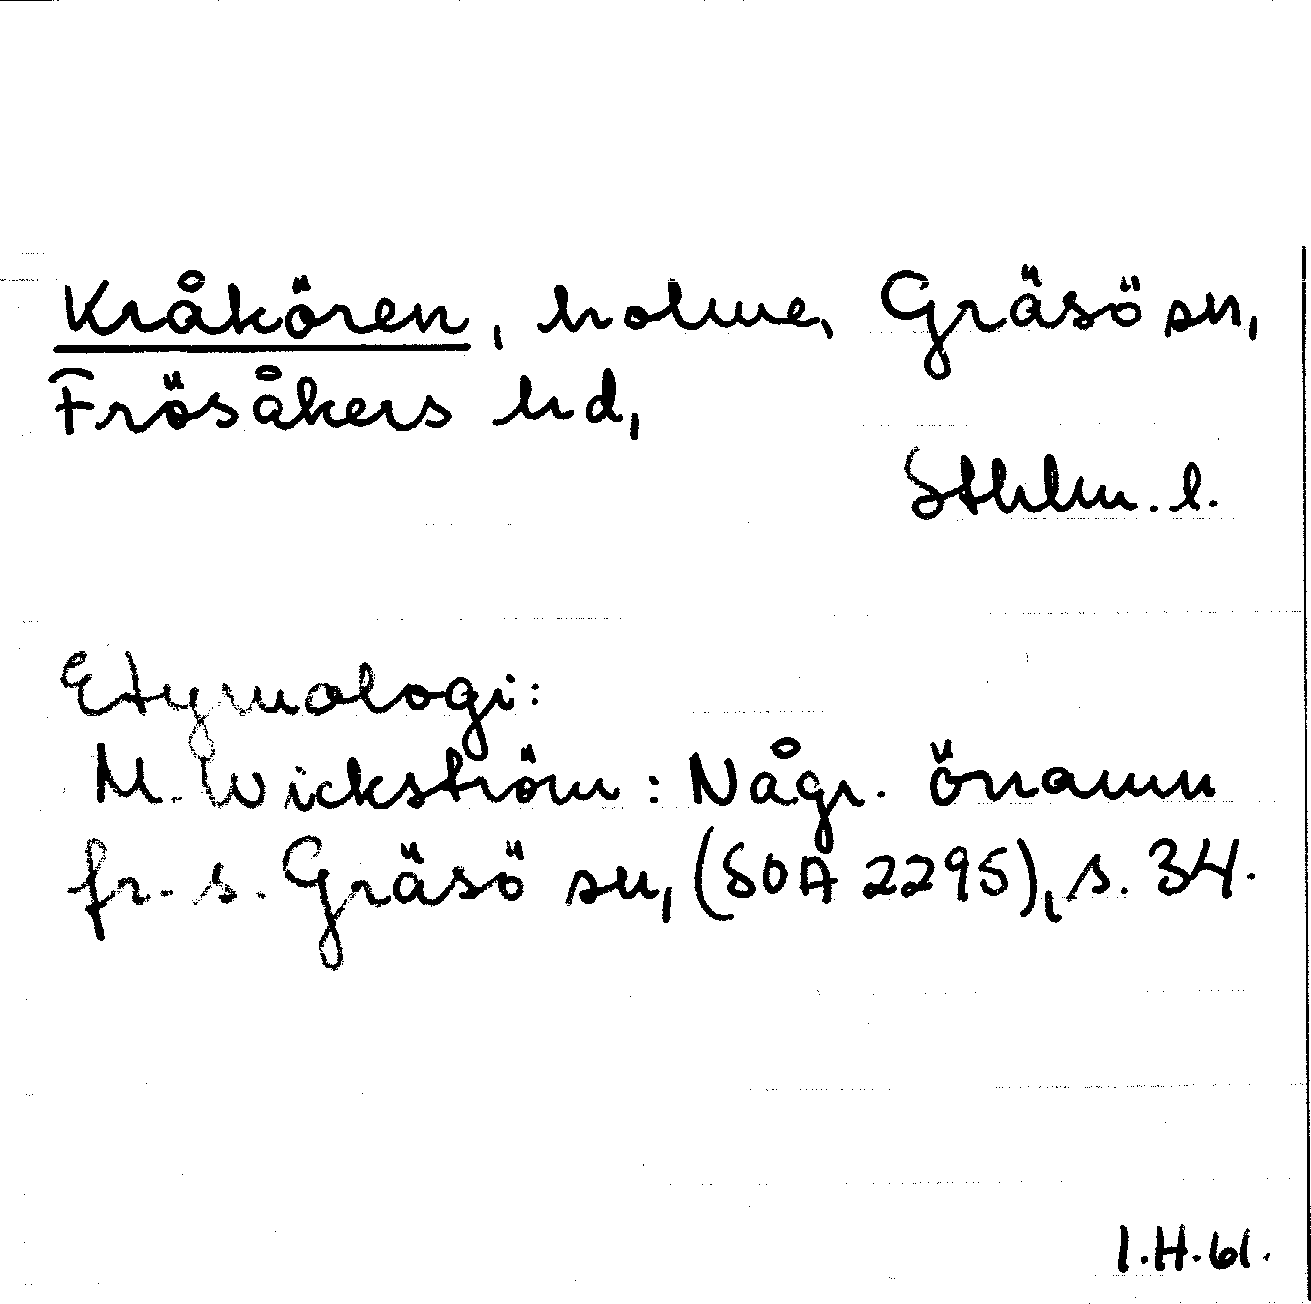 Kråkören, holme, Gräsö sn,
Frösåkers hd,
Sthlm. l.
Etymologi:
M. Wickström: Någr. önamn
fr. s. Gräsö sn, (SOA 2295), s. 34.
I.H.61.